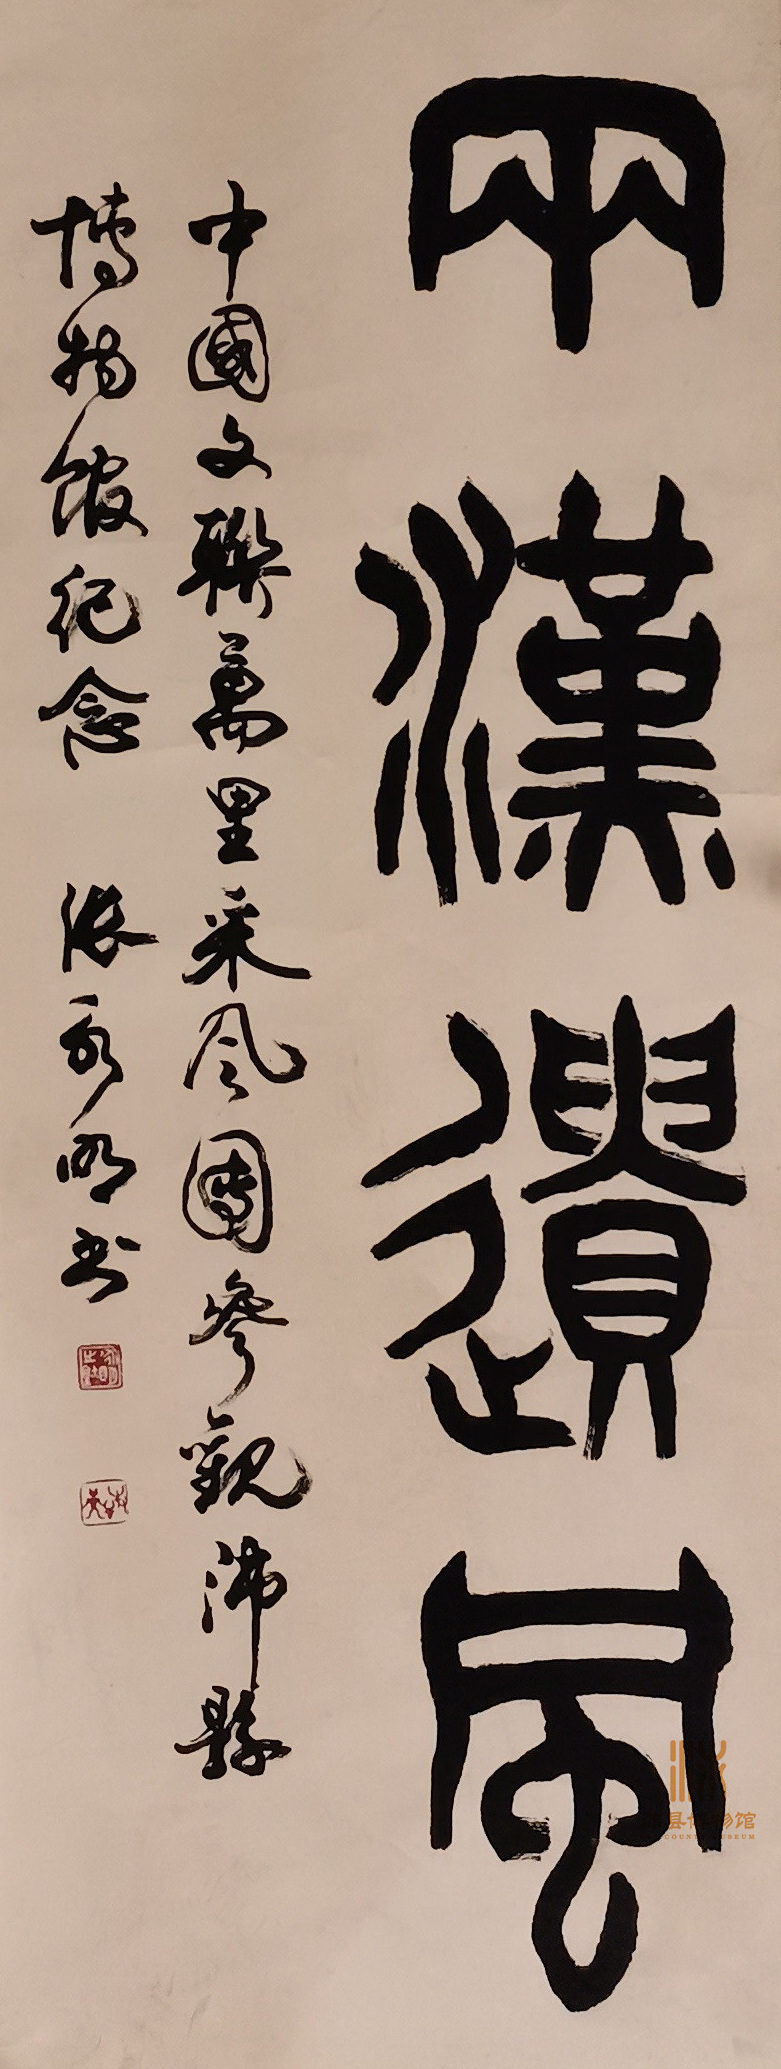 两漢遺風
中國文聯萬里采风團參觀沛縣
博物館纪念 张永明书
县博物馆
COUNTY MUSEUM